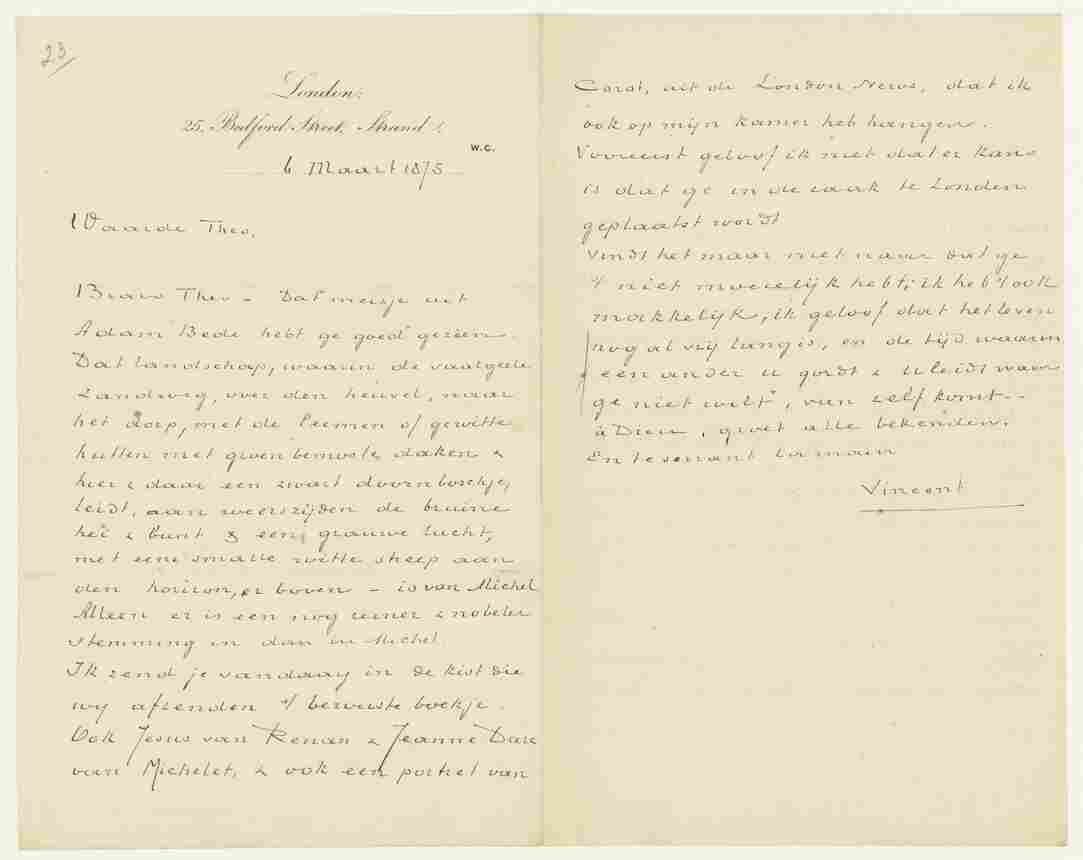 23
London:
25, Bedford Street, Strand.
W.C.
6 Maart 1875
Waarde Theo,
Bravo Theo – Dat meisje uit
Adam Bede hebt ge goed gezien.
Dat landschap, waarin de vaalgeele
zandweg, over den heuvel, naar
het dorp, met de leemen of gewitte
hutten met groen bemoste daken &
hier & daar een zwart doornboschje,
leidt, aan weerszijden de bruine
hei & bunt & een grauwe lucht,
met eene smalle witte streep aan
den horizon, er boven – is van Michel
Alleen er is een nog reiner & nobeler
stemming in dan in Michel.
Ik zend je vandaag in de kist die
wij afzenden 't bewuste boekje.
Ook Jesus van Renan & Jeanne Darc
van Michelet, & ook een portret van
Corot, uit de London News, dat ik
ook op mijn kamer heb hangen.
Vooreerst geloof ik niet dat er kans
is dat ge in de zaak te Londen
geplaatst wordt
Vindt het maar niet naar dat ge
't niet moeielijk hebt, ik heb 't ook
makkelijk, ik geloof dat het leven
nog al vrij lang is, en de tijd waarin
een ander u gordt & u leidt waar
ge niet wilt, van zelf komt.–
à Dieu, groet alle bekenden.
En te serrant la main
Vincent